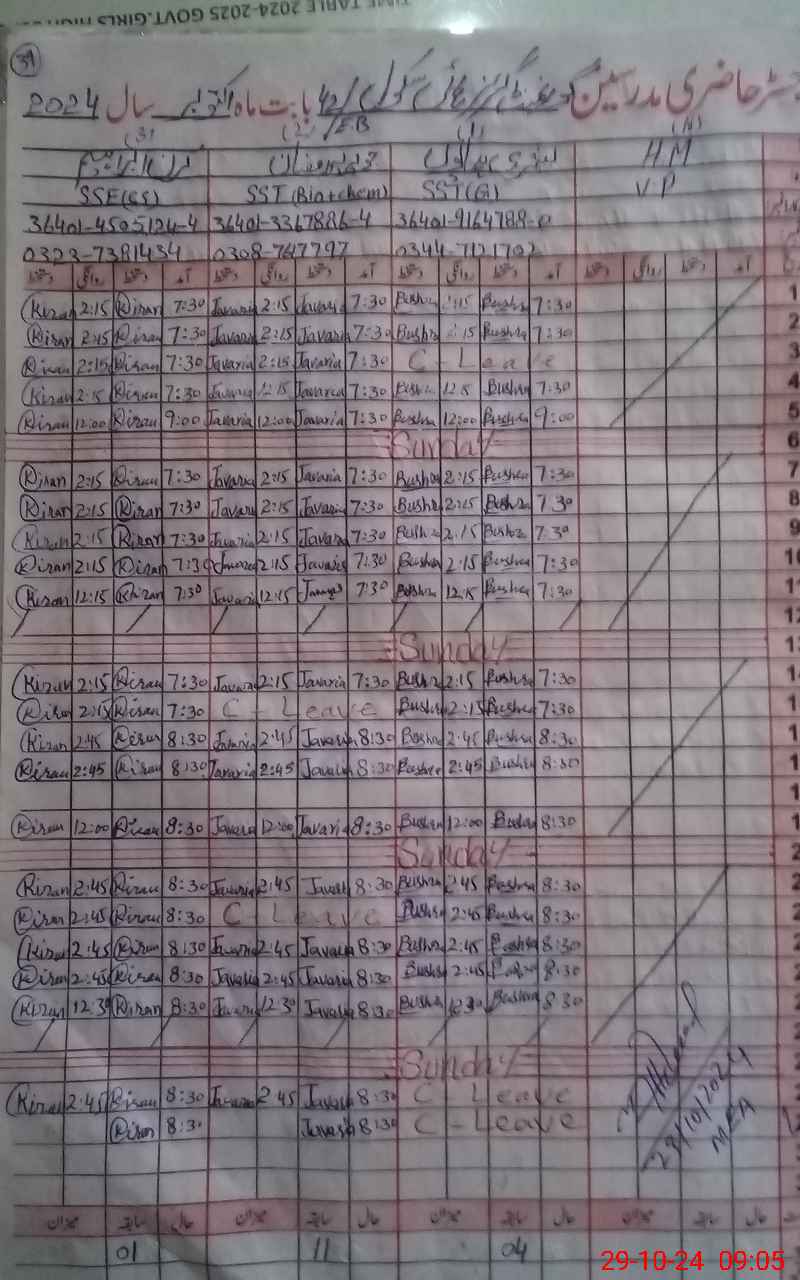 TIME TABLE 2024-2025 GOVT.GIRLS HIGH
39
رجسٹر حاضری مدرسین گورنمنٹ گرلز ہائی سکول 42/EB بابت ماہ اکتوبر سال 2024
(3) (2) (1) (N)
H.M
SSE(CS) SST (Bio+chem) SST(G) V P
36401-4505124-4 36401-3367886-4 36401-9164788-0
0323-7381434 0308-747797 0344-7121702
دستخط روانگی دستخط آمد دستخط روانگی دستخط آمد دستخط روانگی دستخط آمد دستخط روانگی دستخط آمد
Kiran 2:15 Kiran 7:30 Javaria 2:15 Javaria 7:30 Bushra 2:15 Bushra 7:30 1
Kiran 2:15 Kiran 7:30 Javaria 2:15 Javaria 7:30 Bushra 2:15 Bushra 7:30 2
Kiran 2:15 Kiran 7:30 Javaria 2:15 Javaria 7:30 C - Leave 3
Kiran 2:15 Kiran 7:30 Javaria 12:15 Javaria 7:30 Bushra 12:15 Bushra 7:30 4
Kiran 12:00 Kiran 9:00 Javaria 12:00 Javaria 7:30 Bushra 12:00 Bushra 9:00 5
Sunday 6
Kiran 2:15 Kiran 7:30 Javaria 2:15 Javaria 7:30 Bushra 2:15 Bushra 7:30 7
Kiran 2:15 Kiran 7:30 Javaria 2:15 Javaria 7:30 Bushra 2:15 Bushra 7:30 8
Kiran 2:15 Kiran 7:30 Javaria 2:15 Javaria 7:30 Bushra 2:15 Bushra 7:30 9
Kiran 2:15 Kiran 7:30 Javaria 2:15 Javaria 7:30 Bushra 2:15 Bushra 7:30 10
Kiran 12:15 Kiran 7:30 Javaria 12:15 Javaria 7:30 Bushra 12:15 Bushra 7:30 11
12
Sunday
Kiran 2:15 Kiran 7:30 Javaria 2:15 Javaria 7:30 Bushra 2:15 Bushra 7:30
Kiran 2:15 Kiran 7:30 C - Leave Bushra 2:15 Bushra 7:30
Kiran 2:45 Kiran 8:30 Javaria 2:45 Javaria 8:30 Bushra 2:45 Bushra 8:30
Kiran 2:45 Kiran 8:30 Javaria 2:45 Javaria 8:30 Bushra 2:45 Bushra 8:30
Kiran 12:00 Kiran 8:30 Javaria 12:00 Javaria 8:30 Bushra 12:00 Bushra 8:30
Sunday
Kiran 2:45 Kiran 8:30 Javaria 2:45 Javaria 8:30 Bushra 2:45 Bushra 8:30
Kiran 2:45 Kiran 8:30 C - Leave Bushra 2:45 Bushra 8:30
Kiran 2:45 Kiran 8:30 Javaria 2:45 Javaria 8:30 Bushra 2:45 Bushra 8:30
Kiran 2:45 Kiran 8:30 Javaria 2:45 Javaria 8:30 Bushra 2:45 Bushra 8:30
Kiran 12:30 Kiran 8:30 Javaria 12:30 Javaria 8:30 Bushra 12:30 Bushra 8:30
Sunday
Kiran 2:45 Kiran 8:30 Javaria 2:45 Javaria 8:30 C - Leave
Kiran 8:30 Javaria 8:30 C - Leave
29/10/2024
MEA
میزان سابقہ حال میزان سابقہ حال میزان سابقہ حال میزان سابقہ حال
01 11 04
29-10-24 09:05